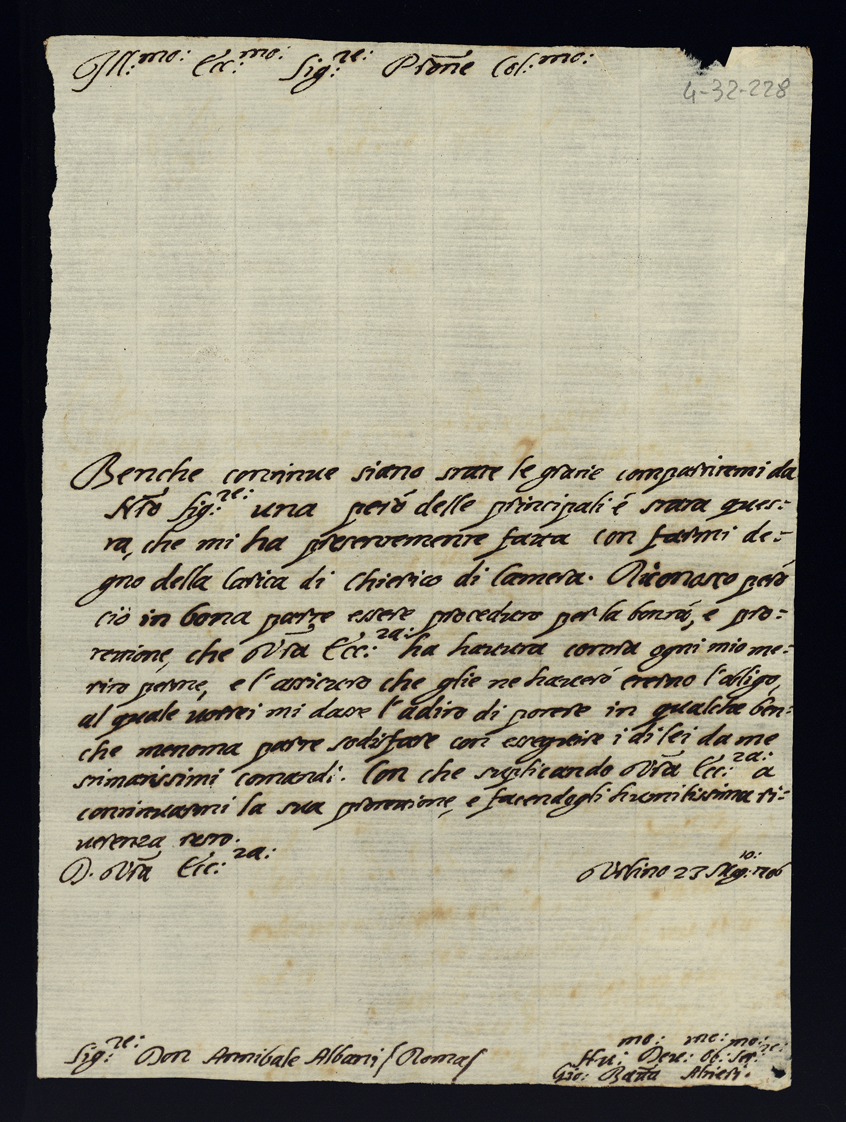 Ill:mo: Ecc:mo: Sig:re: Prōne Col:mo:
4-32-228
Benche continue siano state le gratie compartitemi da
Nrō Sig:re: una però delle principali é stata ques:
ta, che mi ha presentemente fatta con farmi de:
gno della Carica di Chierico di Camera. Riconosco però
ciò in bona parte essere proceduto per la bontà, e pro:
tettione, che Vrā Ecc:za: ha havuta contro ogni mio me:
rito verso me, e l'assicuro che glie ne haverò eterno l'obligo,
al quale vorrei mi dasse l'adito di potere in qualche ben:
che menoma parte sodisfare con esseguire i di lei da me
stimatissimi comandi. Con che suplicando Vrā Ecc:za: a
continuarmi la sua protettione, e facendogli humilissima ri:
verenza resto.
D. Vrā Ecc:za:
Urbino 23 Mag:io: 1706
Sig:re: Don Annibale Albani / Roma /
Hu:mo: Deve:me: Ob: Ser:re:
Gio: Batta